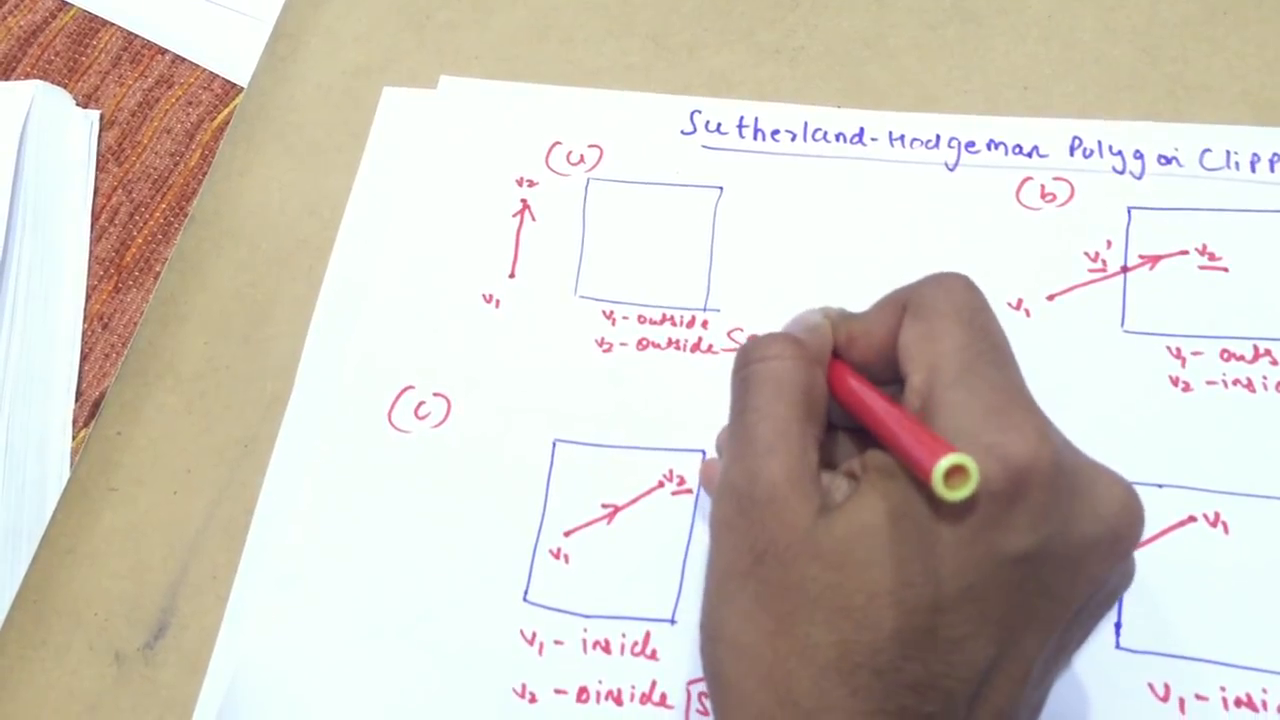 Sutherland-Hodgeman Polygon Clipp
(a)
v2
v1
v1 - outside
v2 - outside
(b)
v1'
v2
v1
v1 - outs
v2 - insi
(c)
v2
v1
v1 - inside
v2 - inside
v1
v1 - insi